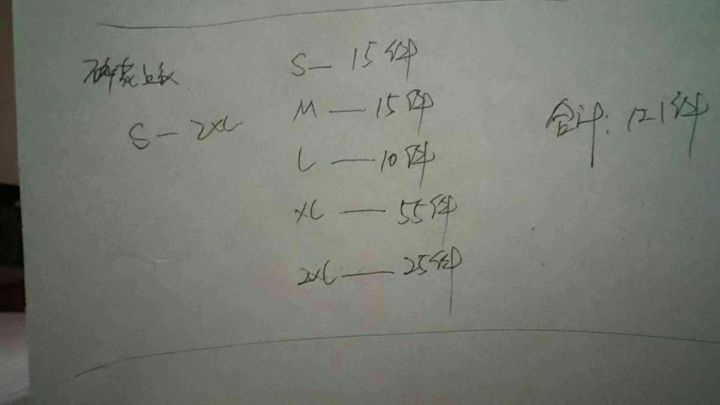 确定数
S - 2XL
S — 15件
M — 15件
L — 10件
XL — 55件
2XL — 25件
合计: 121件